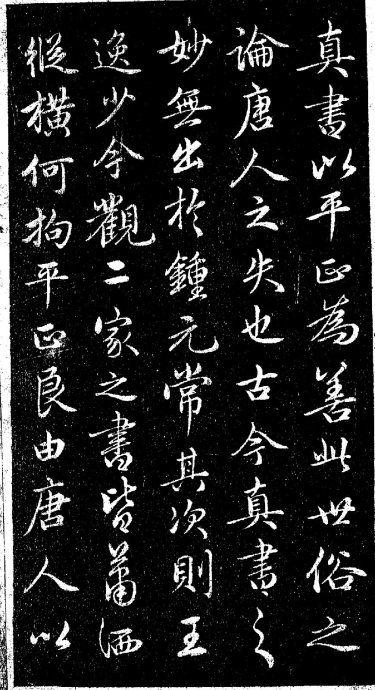 真書以平正為善此世俗之
論唐人之失也古今真書之
妙無出於鍾元常其次則王
逸少今觀二家之書皆蕭洒
縱横何拘平正良由唐人以